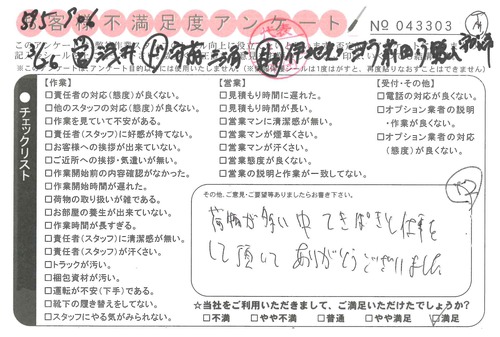 585 806
お客様不満足度アンケート
No 043303
【作業】
□責任者の対応(態度)が良くない。
□他のスタッフの対応(態度)が良くない。
□作業を見ていて不安がある。
□責任者(スタッフ)に好感が持てない。
□お客様への挨拶が出来ていない。
□ご近所への挨拶・気遣いが無い。
□作業開始前の内容確認がなかった。
□作業開始時間が遅れた。
□荷物の取り扱いが雑である。
□お部屋の養生が出来ていない。
□作業時間が長すぎる。
□責任者(スタッフ)に清潔感が無い。
□責任者(スタッフ)が汗くさい。
□トラックが汚い。
□梱包資材が汚い。
□運転が不安(下手)である。
□靴下の履き替えをしてない。
□スタッフにやる気がみられない。
【営業】
□見積もり時間に遅れた。
□見積もり時間が長い。
□営業マンに清潔感が無い。
□営業マンが煙草くさい。
□営業マンが汗くさい。
□営業態度が良くない。
□営業の説明と作業が一致してない。
【受付・その他】
□電話の対応が良くない。
□オプション業者の説明
・作業が良くない。
□オプション業者の対応
(態度)が良くない。
●チェックリスト
その他、ご意見・ご要望等ありましたらお書き下さい。
荷物が多い中 てきぱきと仕事を
して頂して ありがとうございました
☆当社をご利用いただきまして、ご満足いただけたでしょうか?
□不満 □やや不満 □普通 □やや満足 □満足